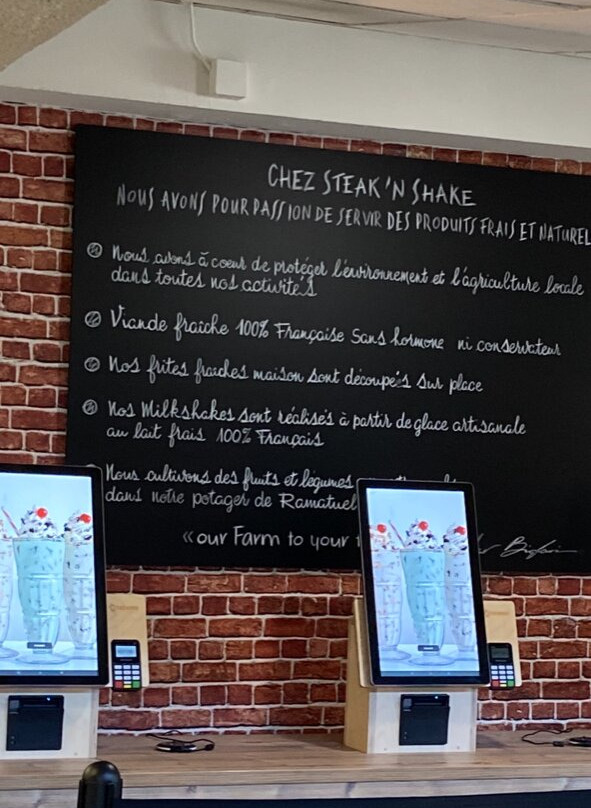 CHEZ STEAK'N SHAKE
NOUS AVONS POUR PASSION DE SERVIR DES PRODUITS FRAIS ET NATUREL
Nous avons à coeur de protéger l'environnement et l'agriculture locale
dans toutes nos activités
Viande fraîche 100% Française sans hormone ni conservateur
Nos frites fraiches maison sont découpées sur place
Nos Milkshakes sont réalisés à partir de glace artisanale
au lait frais 100% Français
Nous cultivons des fruits et légumes
dans notre potager de Ramatuel
«our Farm to your